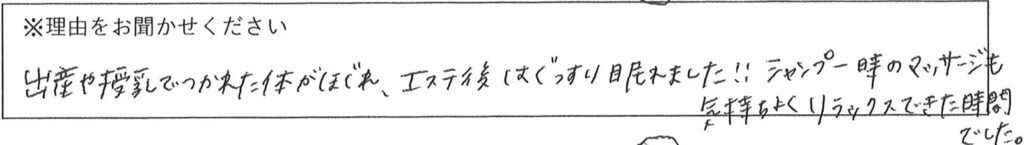 ※理由をお聞かせください
出産や授乳でつかれた体がほぐれ、エステ後はぐっすり眠れました!! シャンプー時のマッサージも
気持ちよくリラックスできた時間
でした。